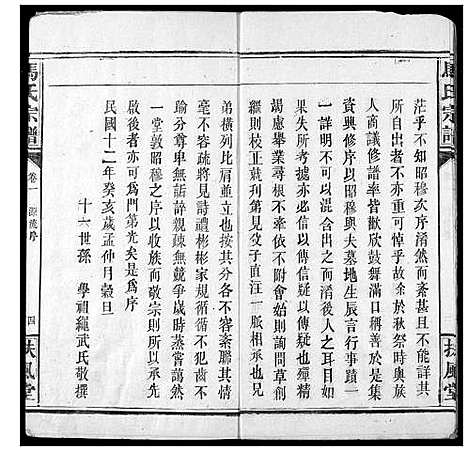 馬氏宗譜
扶風堂
茫乎不知昭穆次序淆然而紊甚且不能詳其
所自出者不亦重可悼乎故余於秋祭時與族
人商議修譜率皆歡欣鼓舞力成其善於是捐
資興修序以昭穆與夫墓地生辰言行事蹟一
一詳明不可以混含出之不誣後人之耳目如
果失所考據亦必信以傳信疑以傳疑而從其
竭慮舉業尋根不牽依不附會始則詢問草創
繼則校正裁刋第見父子直注一脈相承也兄
弟橫列比肩並立也按其分各不容紊聯其情
毫不容疏將見詩禮彬彬家規循循然不犯齒不
踰分尊卑無詬誶親踈無競爭歲時蒸霄藹然
一堂敦昭穆之序以收族而敬宗則所以承先
啟後者亦可為門第光矣是為序
民國十二年癸亥歲孟仲月榖旦
十六世孫　學祖繩武氏敬撰
馬氏宗譜
卷一　源流序
四
扶風堂